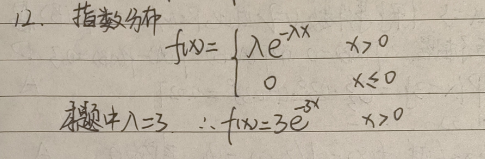 12. 指数分布
f(x)= { λe^{-λx} x>0
0 x≤0
本题中λ=3 ∴f(x)=3e^{-3x} x>0